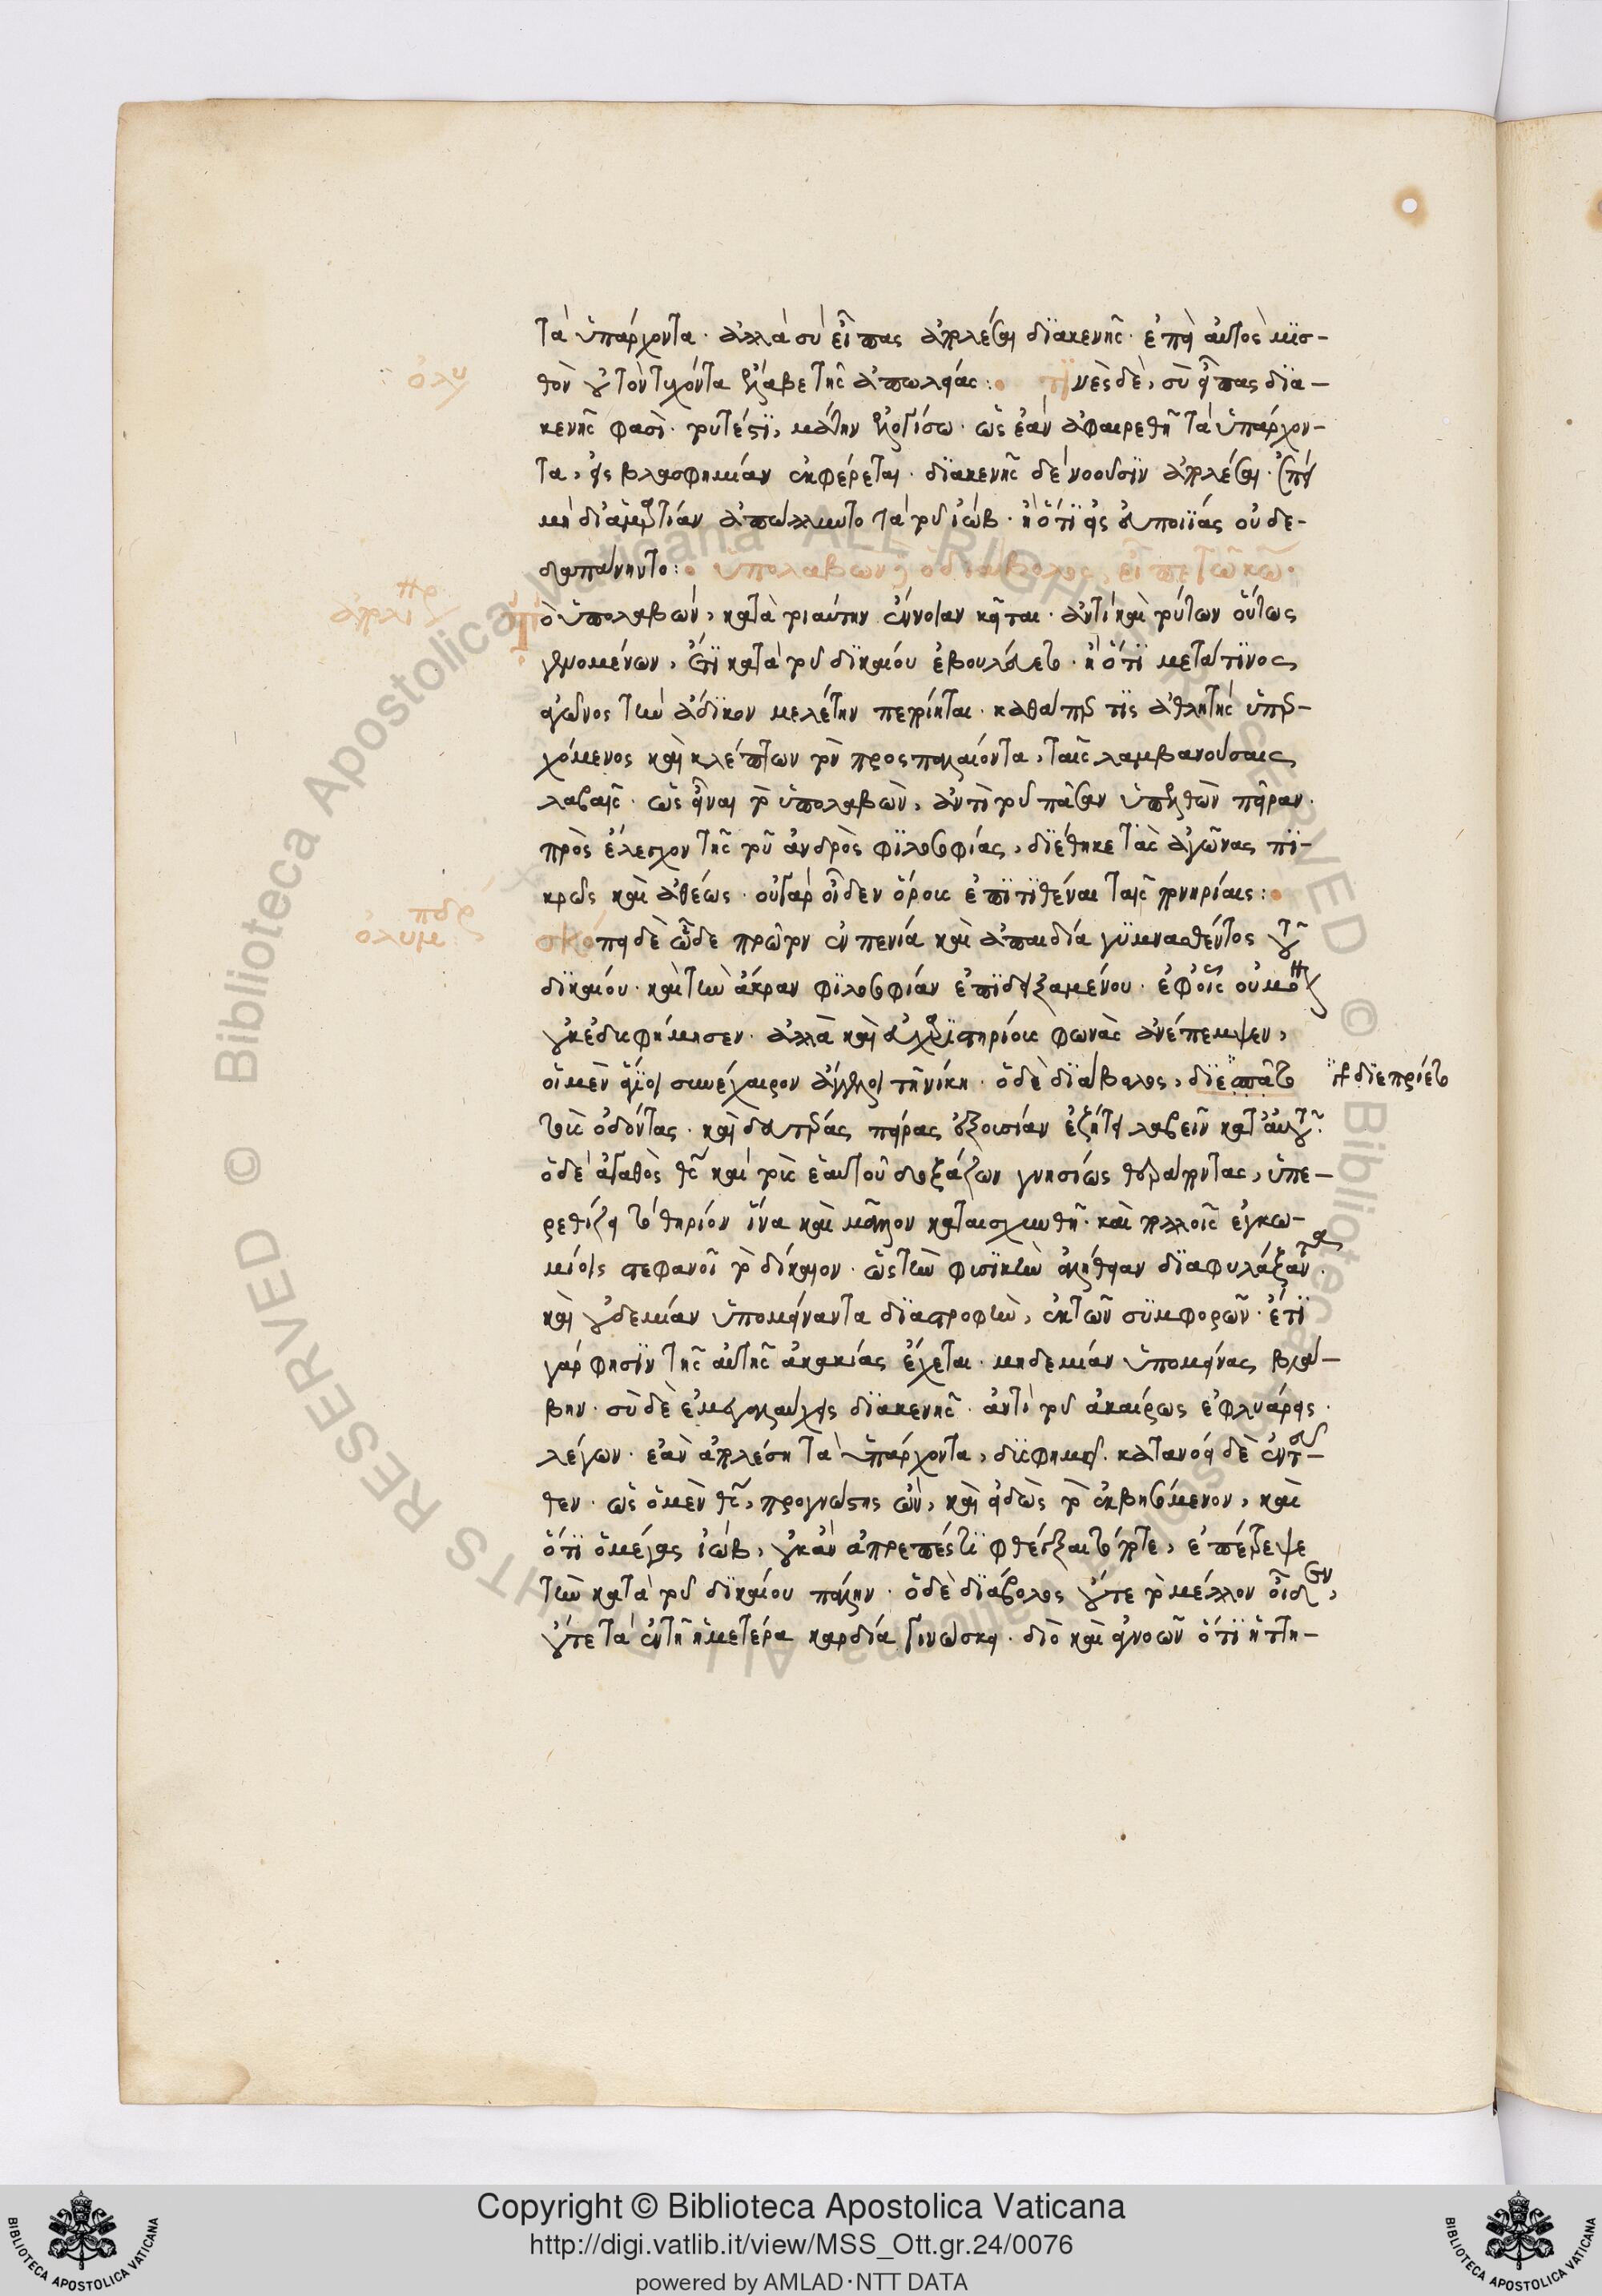 τὰ ὑπάρχοντα· ἀλλὰ σὺ εἶπας ἀπολέσαι διακενῆς· ἐπεὶ αὐτὸς μισ-
ὀλυ
θὸν οὐ τὸν τυχόντα ἔλαβε τῆς ἀπωλείας: τινὲς δὲ, σὺ εἶπας δια-
κενῆς φασὶ· τουτέστι, μάτην ἐλογίσω· ὡς ἐὰν ἀφαιρεθῆ τὰ ὑπάρχον-
τα, εἰς βλασφημίαν ἐκφέρεται· διακενῆς δὲ νοοῦσιν ἀπολέσαι· ἐπεὶ
μὴ δι ἁμαρτίαν ἀπώλλυντο τὰ τοῦ ἰώβ· ἢ ὅτι εἰς εὐποιΐας οὐκ ἐ-
δαπανῆντο: ὑπολαβὼν δὲ ὁ διάβολος, εἶπε τῶ κω
τὸ ὑπολαβὼν, κατὰ τοιαύτην ἔννοιαν κεῖται· ἀντὶ καὶ τούτων οὕτως
γινομένων, ἔτι κατὰ τοῦ δικαίου ἐβουλεύετο· ἢ ὅτι μετά τινος
ἀγῶνος τὴν ἄδικον μελέτην πεποίηται· καθάπερ τις ἀθλητὴς ὑπερ-
χόμενος καὶ κλέπτων τὸν προσπαλαίοντα, ταῖς λαμβανούσαις
λαβαῖς· ὡς εἶναι τὸ ὑπολαβὼν, ἀντὶ τοῦ πᾶσαν ὑπελθὼν πεῖραν·
πρὸς ἔλεγχον τῆς τοῦ ἀνδρὸς φιλοσοφίας, διέθηκε τὰς ἀγῶνας πι-
κρῶς καὶ ἀθέως· οὐ γὰρ οἶδεν ὅρους ἐπιτιθέναι ταῖς πονηρίαις:
ὀλυμπδρ
σκόπει δὲ ὧδε πρῶτον ἐν πενία καὶ ἀπαιδία γυμνασθέντος τοῦ
δικαίου· καὶ τὴν ἄκραν φιλοσοφίαν ἐπιδειξαμένου· ἐφ οἷς οὐ μόνον
οὐκ ἐδυσφήμησεν· ἀλλὰ καὶ εὐχαριστηρίους φωνὰς ἀνέπεμψεν,
οἱ μὲν ἅγιοι συνέχαιρον ἄγγελοι τῆ νίκη· ὁ δὲ διάβολος, διεσπᾶτο
διεπρίετο
τοὺς ὀδόντας· καὶ δευτέρας πείρας ἐξουσίαν ἐζήτει λαβεῖν κατ αὐτοῦ·
ὁ δὲ ἀγαθὸς θς καὶ τοὺς ἑαυτοῦ δοξάζων γνησίως θεράποντας, ὑπε-
ρεθίζει τὸ θηρίον ἵνα καὶ μᾶλλον καταισχυνθῆ· καὶ πολλοῖς ἐγκω-
μίοις στεφανοῖ τὸ δίκαιον· ὡς τὴν φυσικὴν ἀλήθειαν διαφυλάξαντα·
καὶ οὐδεμίαν ὑπομείναντα διαστροφὴν, ἐκ τῶν συμφορῶν· ἔτι
γάρ φησιν τῆς αὐτῆς ἀκακίας ἔχεται· μηδεμίαν ὑπομείνας βλά-
βην· σὺ δὲ ἐμεγαλαύχεις διακενῆς· ἀντὶ τοῦ ἀκαίρως ἐφλυάρεις·
λέγων· ἐὰν ἀπολέση τὰ ὑπάρχοντα, δυσφημεῖ· κατανόει δὲ ἐντεῦ-
θεν· ὡς ὁ μὲν θς, προγνώστης ὢν, καὶ εἰδὼς τὸ ἐκβησόμενον, καὶ
ὅτι ὁ μέγας ἰώβ, οὐκ ἂν ἀπρεπές τι φθέγξαιτό ποτε, ἐπέτρεψε
τὴν κατὰ τοῦ δικαίου πάλην· ὁ δὲ διάβολος οὔτε τὸ μέλλον οἶδεν,
οὔτε τὰ ἐν τῆ ἡμετέρα καρδία γινώσκει· διὸ καὶ ἀγνοῶν ὅτι ἡττη-
Copyright © Biblioteca Apostolica Vaticana
http://digi.vatlib.it/view/MSS_Ott.gr.24/0076
powered by AMLAD·NTT DATA
BIBLIOTECA APOSTOLICA VATICANA
BIBLIOTECA APOSTOLICA VATICANA
© Biblioteca Apostolica Vaticana ALL RIGHTS RESERVED
© Biblioteca Apostolica Vaticana ALL RIGHTS RESERVED